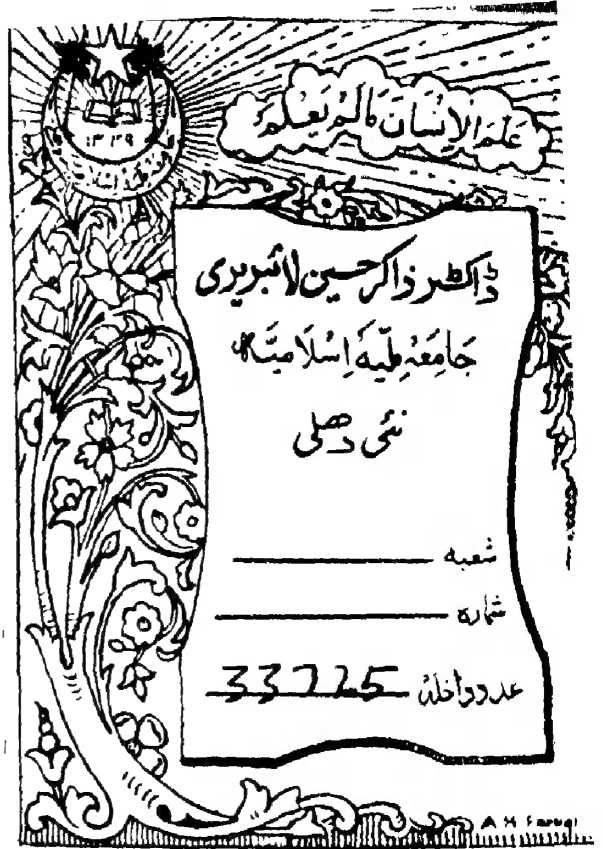 عَلَّمَ الْاِنْسَانَ مَا لَمْ يَعْلَمْ
۱۳۳۹
ڈاکٹر ذاکر حسین لائبریری
جَامِعَہ مِلّیَہ اِسْلَامیَّہ
نئی دھلی
شعبہ
شمارہ
عدد داخلہ 33725
A M Faruqi